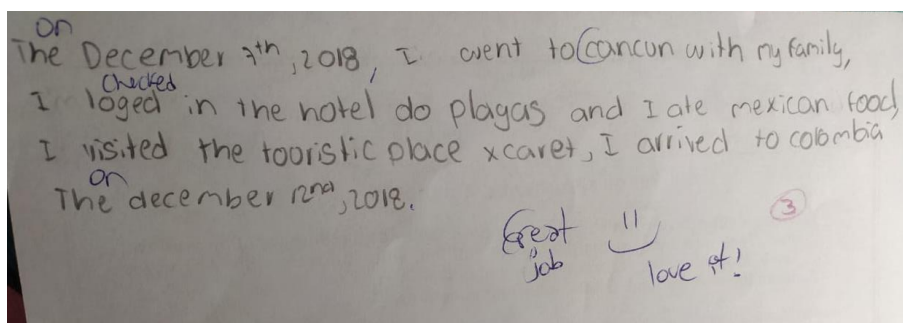 on
The December 7th, 2018, I went to Cancun with my family,
Checked
I loged in the hotel do playas and I ate mexican food,
I visited the tooristic place xcaret, I arrived to colombia
on
The december 12nd, 2018.
Great
job
love it!
3